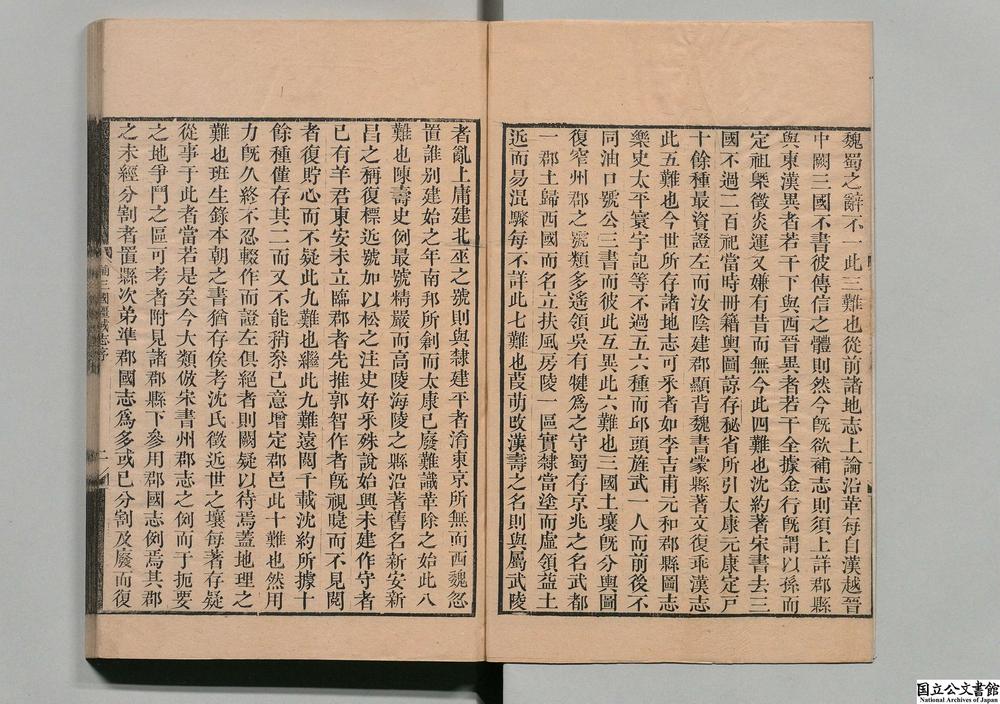 魏蜀之辭不一此三難也從前諸地志上論沿革每自漢越晉
中闕三國不書彼傳信之體則然今旣欲補志則須上詳郡縣
與東漢異者若干下與西晉異者若干全據金行旣謂以孫而
定祖槩徵炎運又嫌有昔而無今此四難也沈約著宋書去三
國不過二百祀當時冊籍輿圖諒存秘省所引太康元康定戸
十餘種最資證左而汝陰建郡顯背魏書蒙縣著文復乖漢志
此五難也今世所存諸地志可釆者如李吉甫元和郡縣圖志
樂史太平寰宇記等不過五六種而邱頭旌武一人而前後不
同油口號公三書而彼此互異此六難也三國土壤旣分輿圖
復窄州郡之號類多遙領吳有犍爲之守蜀存京兆之名武都
一郡土歸西國而名立扶風房陵一區實隸當塗而虛領益土
近而易混驟每不詳此七難也葭萌攺漢壽之名則與屬武陵
者亂上庸建北巫之號則與隸建平者淆東京所無而西魏忽
置誰别建始之年南邦所剏而太康已廢難識革除之始此八
難也陳壽史例最號精嚴而高陵海陵之縣沿著舊名新安新
昌之稱復標近號加以松之注史好釆殊說始興未建作守者
已有羊君東安未立臨郡者先推郭智作者旣視睫而不見閱
者復貯心而不疑此九難也繼此九難遠閱千載沈約所據十
餘種僅存其二而又不能稍叅己意增定郡邑此十難也然用
力旣久終不忍輟作而證左俱絕者則闕疑以待焉蓋地理之
難也班生錄本朝之書猶存俟考沈氏徵近世之壤每著存疑
從事于此者當若是矣今大類倣宋書州郡志之例而于扼要
之地爭鬥之區可考者附見諸郡縣下參用郡國志例焉其郡
之未經分割者置縣次弟準郡國志爲多或已分割及廢而復
補三國疆域志序
二
国立公文書館
National Archives of Japan